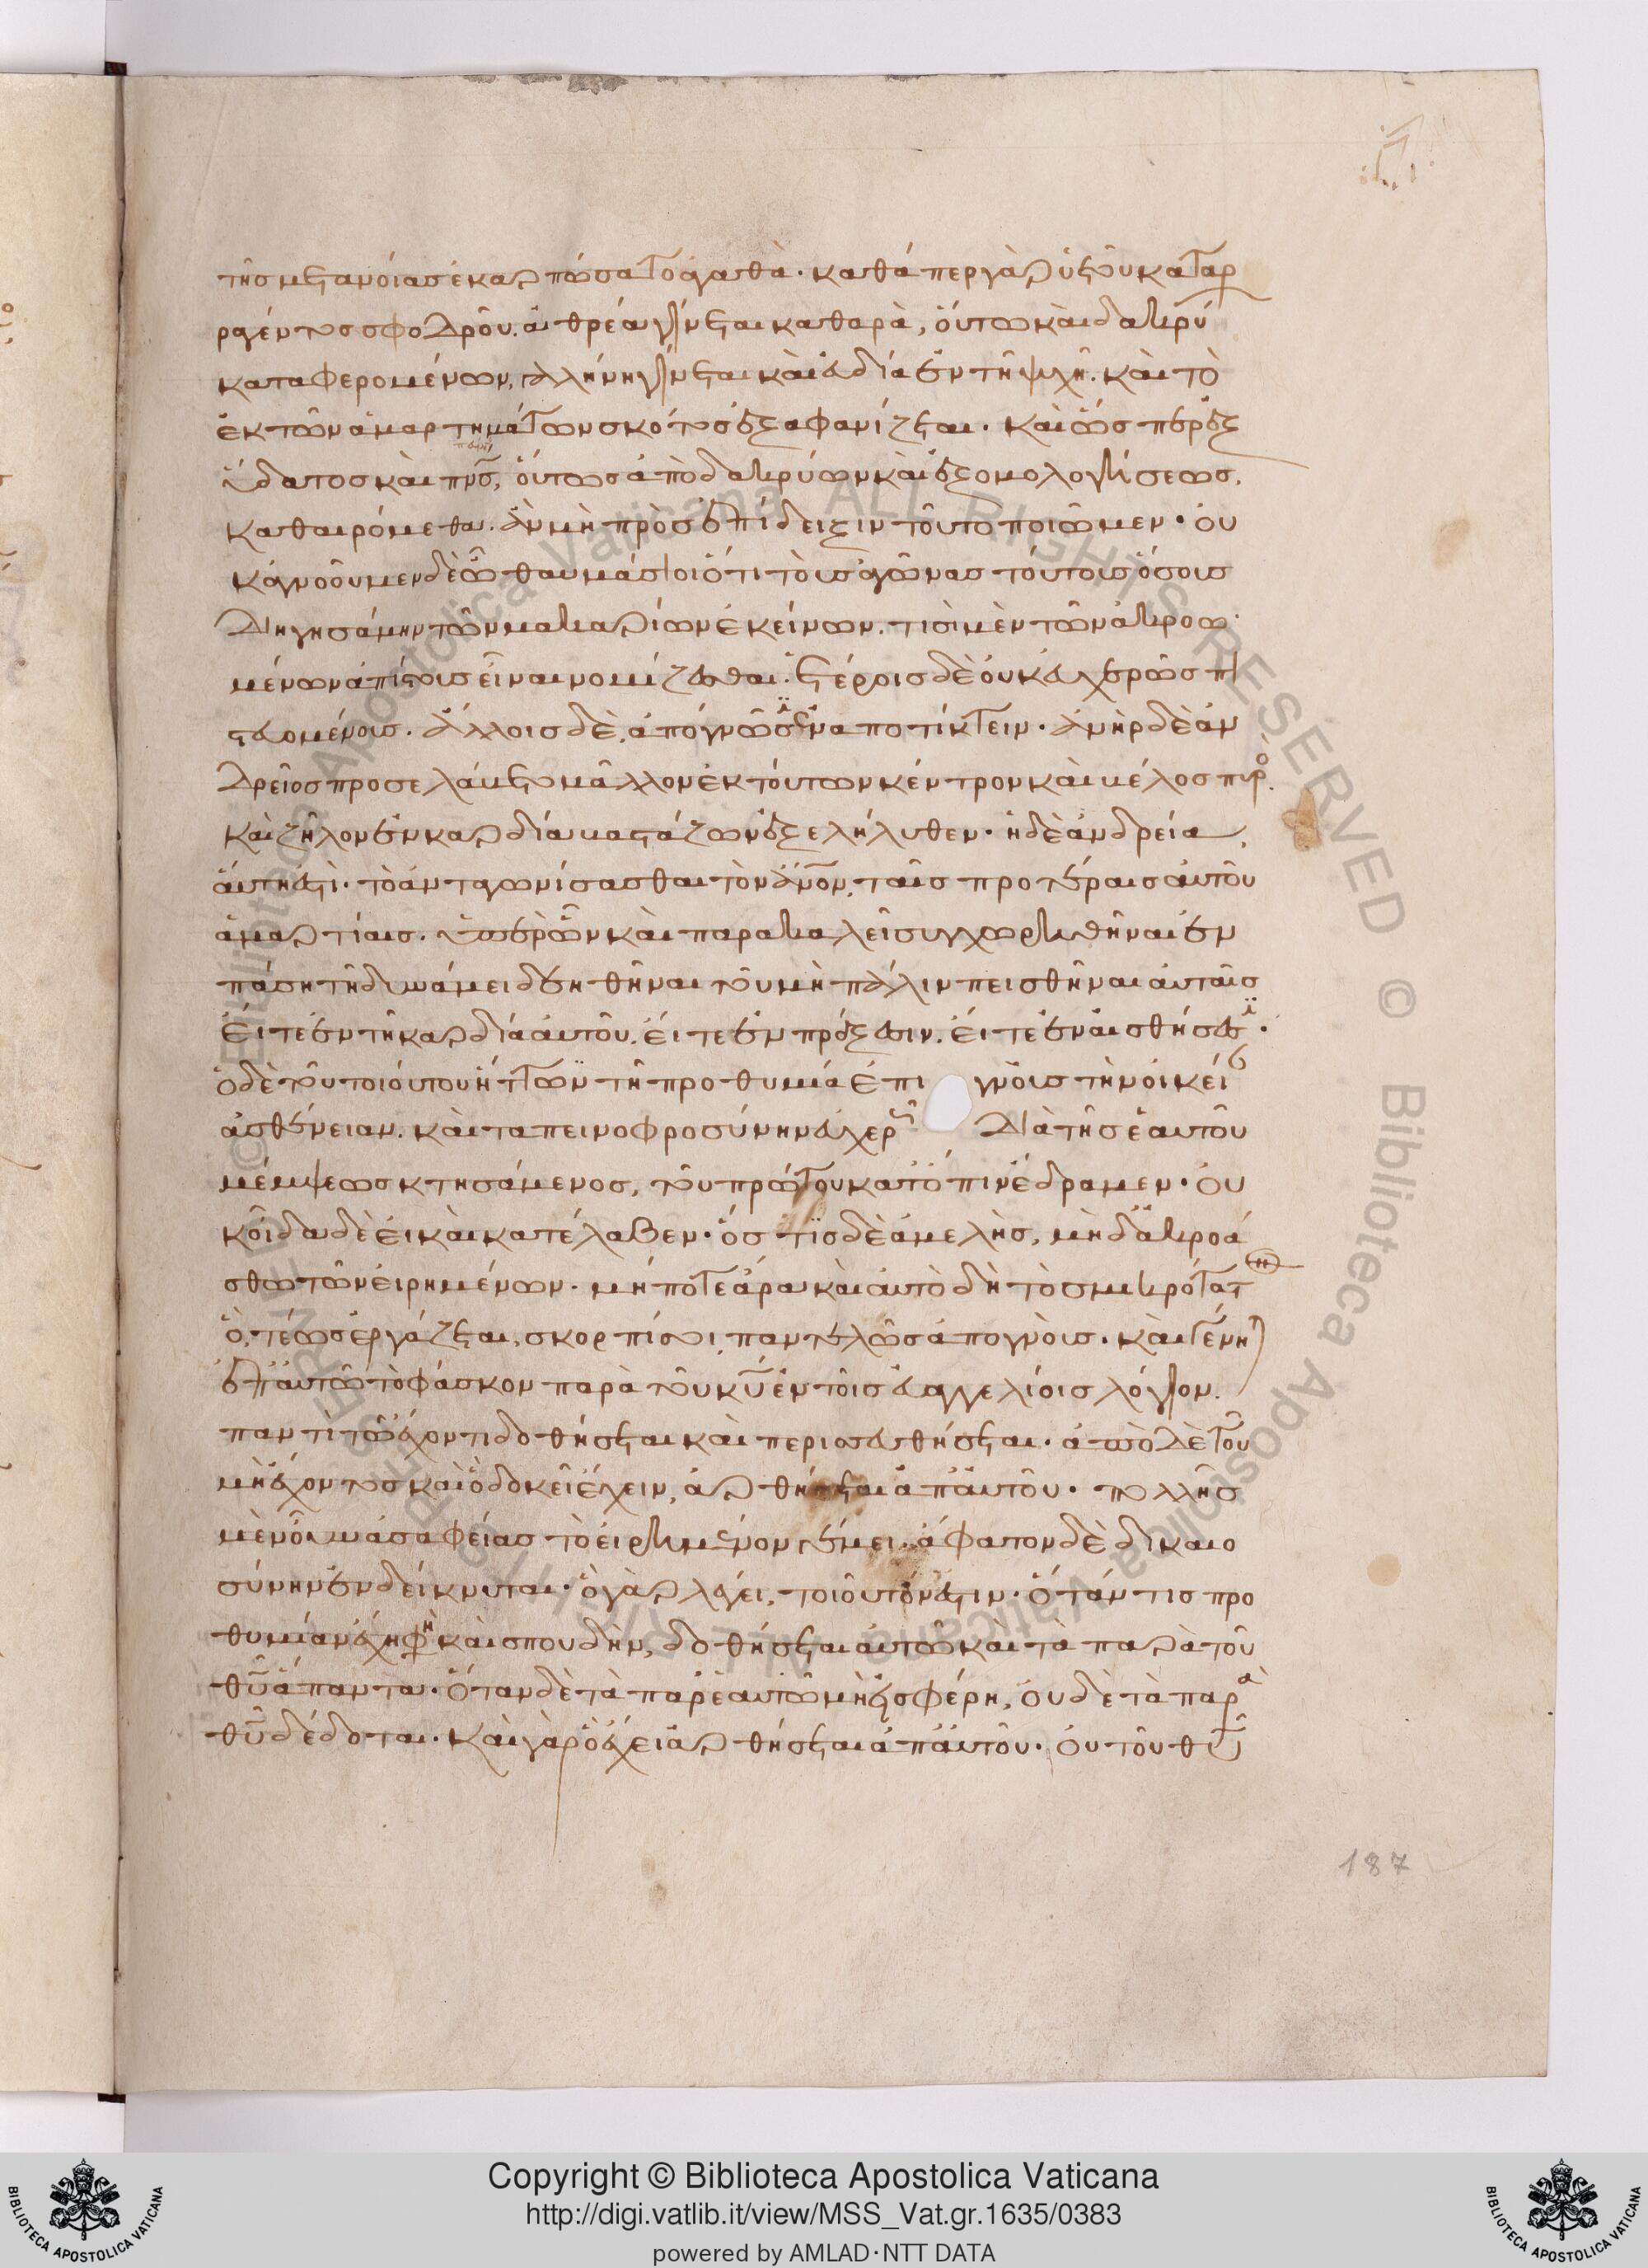 τῆς μετανοίας ἐκαρπώσατο ἀγαθά· καθάπερ γὰρ ὑετοῦ καταρ
ραγέντος σφοδροῦ. αἰθρέα γίνεται καθαρὰ, οὕτω καὶ δακρύ
καταφερομένων, γαλήνη γίνεται καὶ εὐδία ἐν τῆ ψυχῆ. καὶ τὸ
ἐκ τῶν ἁμαρτημάτων σκότος ἐξαφανίζεται· καὶ ὥσπερ ἐξ
ὕδατος καὶ πνς, οὕτως ἀπὸ δακρύων καὶ ἐξομολογήσεως,
καθαιρόμεθα. ἂν μὴ πρὸς ἐπίδειξιν τοῦτο ποιῶμεν· οὐ
κ ἀγνοοῦμεν δὲ ὦ θαυμάσιοι ὅτι τοὺς ἀγῶνας τούτους ὅσους
διηγησάμην τῶν μακαρίων ἐκείνων. τισὶ μὲν τῶν ἀκροω
μένων ἀπίστους εἶναι νομίζεσθαι. ἑτέροις δὲ οὐκ εὐχερῶς πι
στευομένοις. ἄλλοις δὲ, ἀπόγνωσιν ἐναποτίκτειν· ἀνὴρ δὲ ἀν
δρεῖος προσελάμβετο μᾶλλον ἐκ τούτων κέντρον καὶ μέλος πυρὸ
καὶ ζῆλον ἐν καρδία βαστάζων ἐξελήλυθεν· ἡ δὲ ἀνδρεία,
αὕτη ἐστὶ· τὸ ἀνταγωνίσασθαι τὸν ἄνον, ταῖς προτέραις αὐτοῦ
ἁμαρτίαις. ὑπὲρ ὧν καὶ παρακαλεῖ συγχωρηθῆναι ἐν
πάση τῆ δυνάμει δεηθῆναι τοῦ μὴ πάλιν πεισθῆναι αὐταῖς
εἴτε ἐν τῆ καρδία αὐτοῦ. εἴτε ἐν πράξεσιν. εἴτε ἐν αἰσθήσεσι·
ὁ δὲ τοῦ τοιούτου ἥττων τῆ προθυμία ἐπιγνοὺς τὴν οἰκεί
ἀσθένειαν. καὶ ταπεινοφροσύνην εὐχερῶ διὰ τῆς ἑαυτοῦ
μέμψεως κτησάμενος, τοῦ πρώτου κατόπιν ἔδραμεν· οὐ
κ οἶδα δὲ εἰ καὶ κατέλαβεν· ὅστις δὲ ἀμελὴς, μὴ δ' ἀκροά
σθω τῶν εἰρημένων· μήποτε ἄρα καὶ αὐτὸ δὴ τὸ σμικρότατ
ὃ, τέως ἐργάζεται, σκορπίσοι, παντελῶς ἀπογνοὺς· καὶ γένη
ἐπ' αὐτῶ τὸ φάσκον παρὰ τοῦ κυ ἐν τοῖς εὐαγγελίοις λόγιον.
παντὶ τῶ ἔχοντι δοθήσεται καὶ περισσευθήσεται· ἀπὸ δὲ τοῦ
μὴ ἔχοντος καὶ ὃ δοκεῖ ἔχειν, ἀρθήσεται ἀπ' αὐτοῦ· πολλῆς
μὲν οὖν ἀσαφείας τὸ εἰρημένον γέμει· ἄφατον δὲ δικαιο
σύνην ἐνδείκνυται· ὃ γὰρ λέγει, τοιοῦτόν ἐστιν· ὅταν τις προ
θυμίαν ἔχη φη καὶ σπουδὴν, δοθήσεται αὐτῶ καὶ τὰ παρὰ τοῦ
θυ ἅπαντα· ὅταν δὲ τὰ παρ' ἑαυτῶ μὴ εἰσφέρη, οὐδὲ τὰ παρὰ
θυ δέδοται· καὶ γὰρ ὃ ἔχει ἀρθήσεται ἀπ' αὐτοῦ· οὐ τοῦ θυ
187
Copyright © Biblioteca Apostolica Vaticana
http://digi.vatlib.it/view/MSS_Vat.gr.1635/0383
powered by AMLAD·NTT DATA